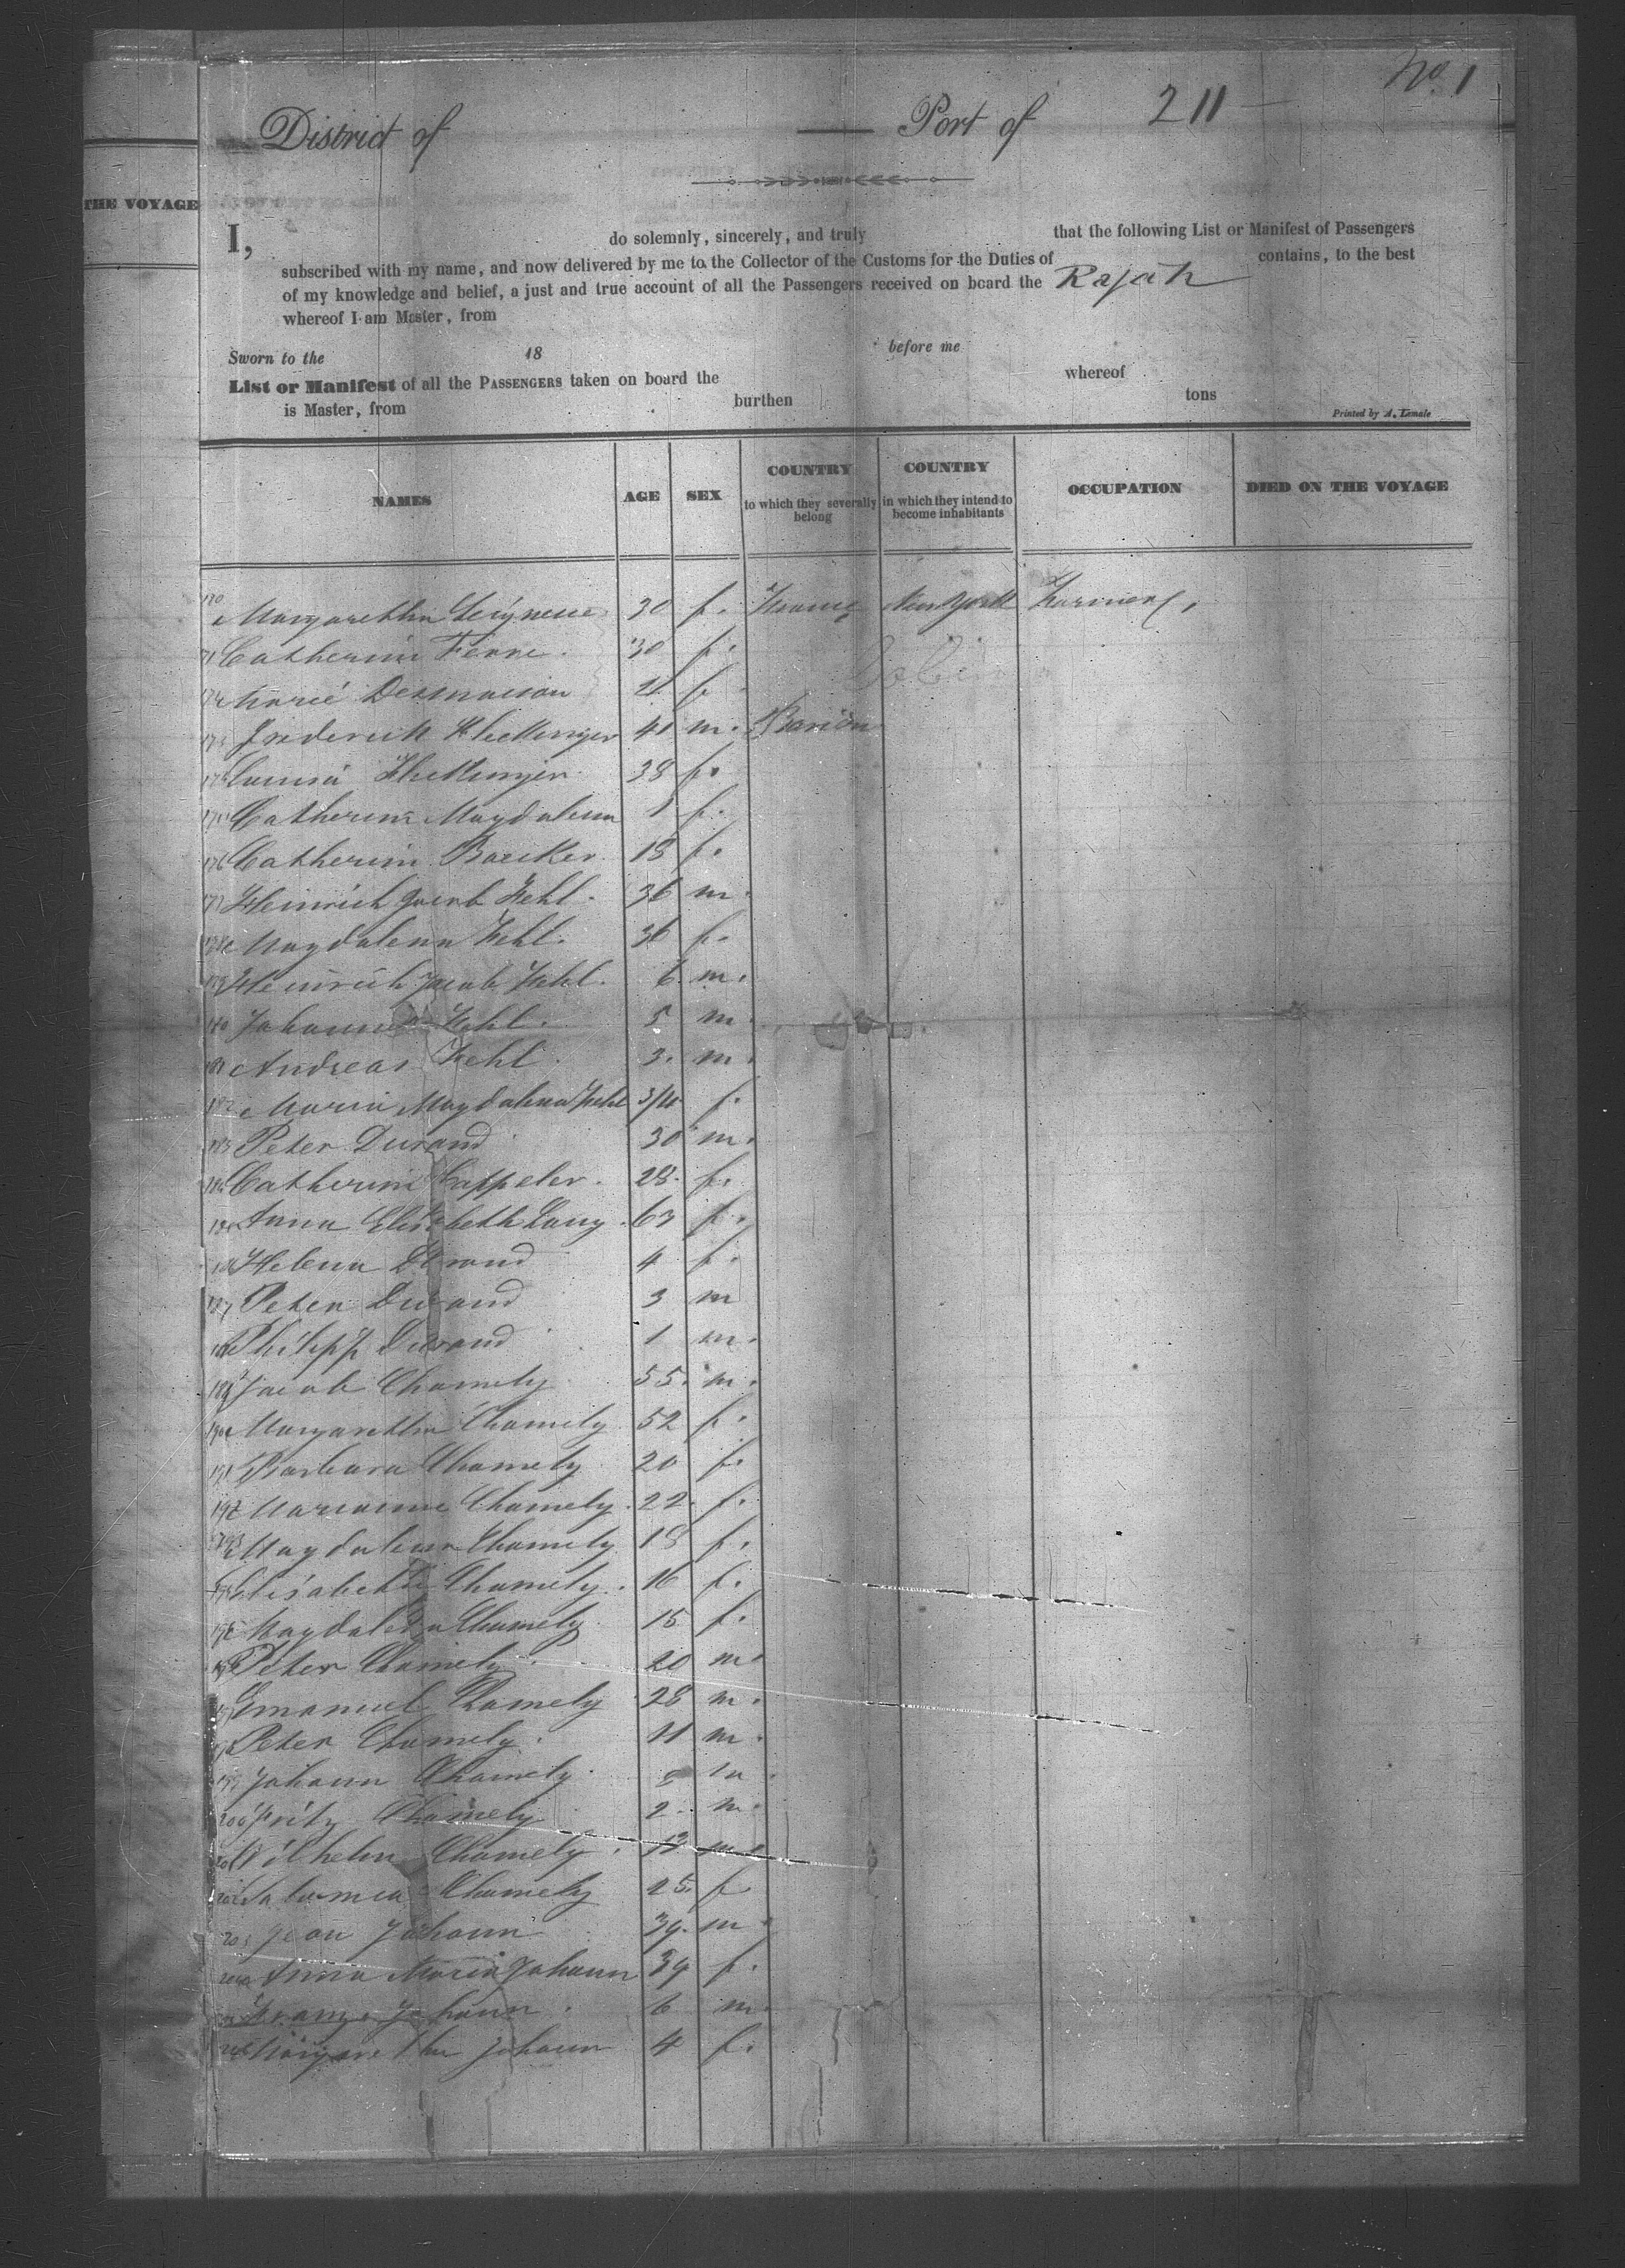 No. 1
District of Port of 211
THE VOYAGE
I, do solemnly, sincerely, and truly that the following List or Manifest of Passengers
subscribed with my name, and now delivered by me to the Collector of the Customs for the Duties of contains, to the best
of my knowledge and belief, a just and true account of all the Passengers received on board the Rajah
whereof I am Master, from
Sworn to the 18 before me
List or Manifest of all the PASSENGERS taken on board the whereof
is Master, from burthen tons
Printed by A. Lemale
NAMES AGE SEX COUNTRY to which they severally belong COUNTRY in which they intend to become inhabitants OCCUPATION DIED ON THE VOYAGE
Margaretha 30 f. France New York
171 Catherine Ferre. 30 f.
Marie f
Frederick 41 m.
38 f.
Catherine Magdalena 1 f.
176 Catherine Baecker 18 f.
177 Heinrich Jacob Hehl. 36 m.
178 Magdalena Hehl. 36 f.
179 Heinrich Jacob Hehl. 6 m.
180 Johannes Hehl. 5 m.
181 Andreas Hehl 3. m.
182 Maria Magdalena Hehl 3/4 f.
183 Peter Durand 30 m.
184 Catherine Cappeler. 28. f.
185 Anna Elisabeth Lang. 63 f.
186 Helena Durand 4 f.
187 Peter Durand 3 m
188 Philipp Durand 1 m.
189 Jacob Chamely 55. m.
190 Margaretha Chamely 52 f.
191 Barbara Chamely 20 f.
192 Marianne Chamely. 22. f.
193 Magdalena Chamely 18 f.
Elisabeth Chamely. 16 f.
195 Magdalena Chamely 15 f.
Peter Chamely. 20 m.
Emanuel Chamely 28 m.
Peter Chamely. 11 m.
199 Johann Chamely. m.
200 Fritz Chamely 2. m.
201 Wilhelm Chamely. 13 m.
202 Chamely 25. f
203 Jean Johann 39. m.
204 Anna Maria Johann 39 f.
Franz Johann. 6 m.
206 Margaretha Johann 4 f.